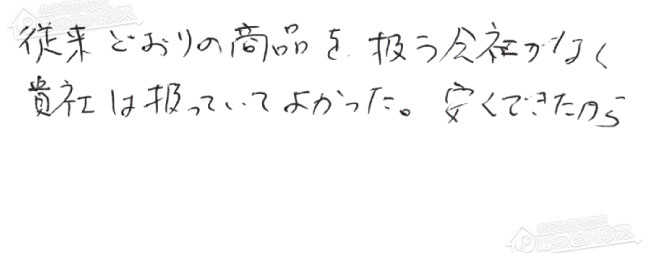 従来どおりの商品を扱う会社がなく
貴社は扱っていてよかった。安くできたから